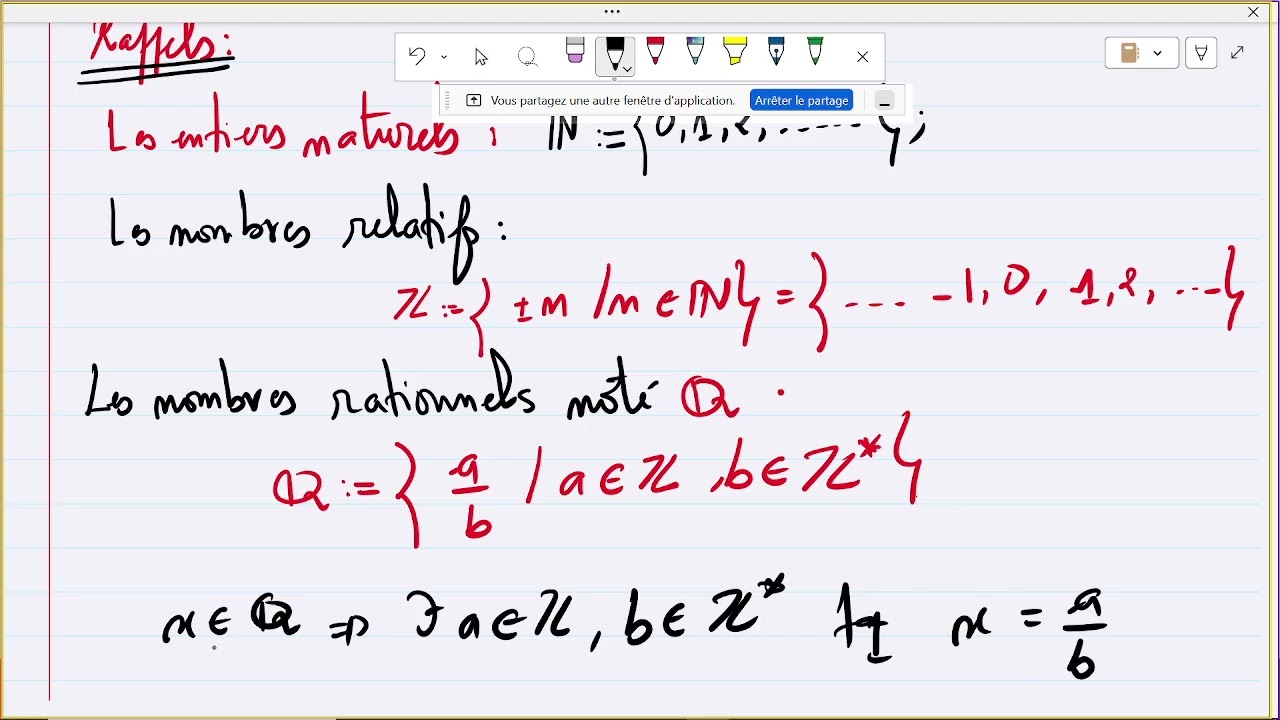 Rappels:
Vous partagez une autre fenêtre d'application. Arrêter le partage
Les entiers naturels : ℕ := {0, 1, 2, ......};
Les nombres relatifs :
ℤ := { ±n / n ∈ ℕ } = { .... -1, 0, 1, 2, ... }
Les nombres rationnels noté ℚ .
ℚ := { a/b / a ∈ ℤ, b ∈ ℤ* }
x ∈ ℚ ⇒ ∃ a ∈ ℤ, b ∈ ℤ* tq x = a/b